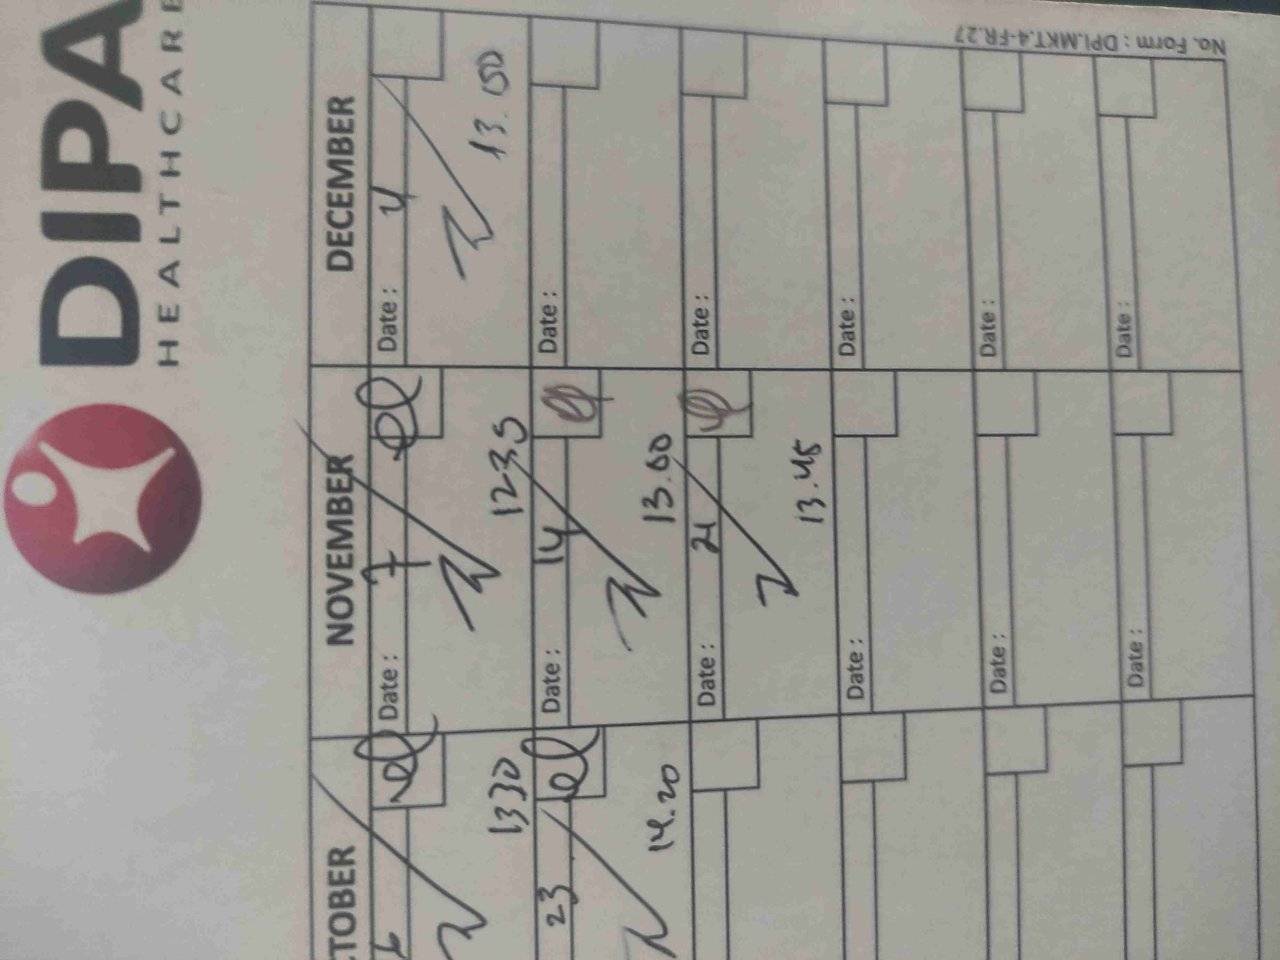 DIPA
HEALTHCARE
No. Form : DPI.MKT.4-FR.27
CTOBER
NOVEMBER
DECEMBER
6
Date : 7
Date : 4
1330
1235
13.00
23
Date : 14
Date :
14.20
13.00
Date : 21
Date :
13.45
Date :
Date :
Date :
Date :
Date :
Date :